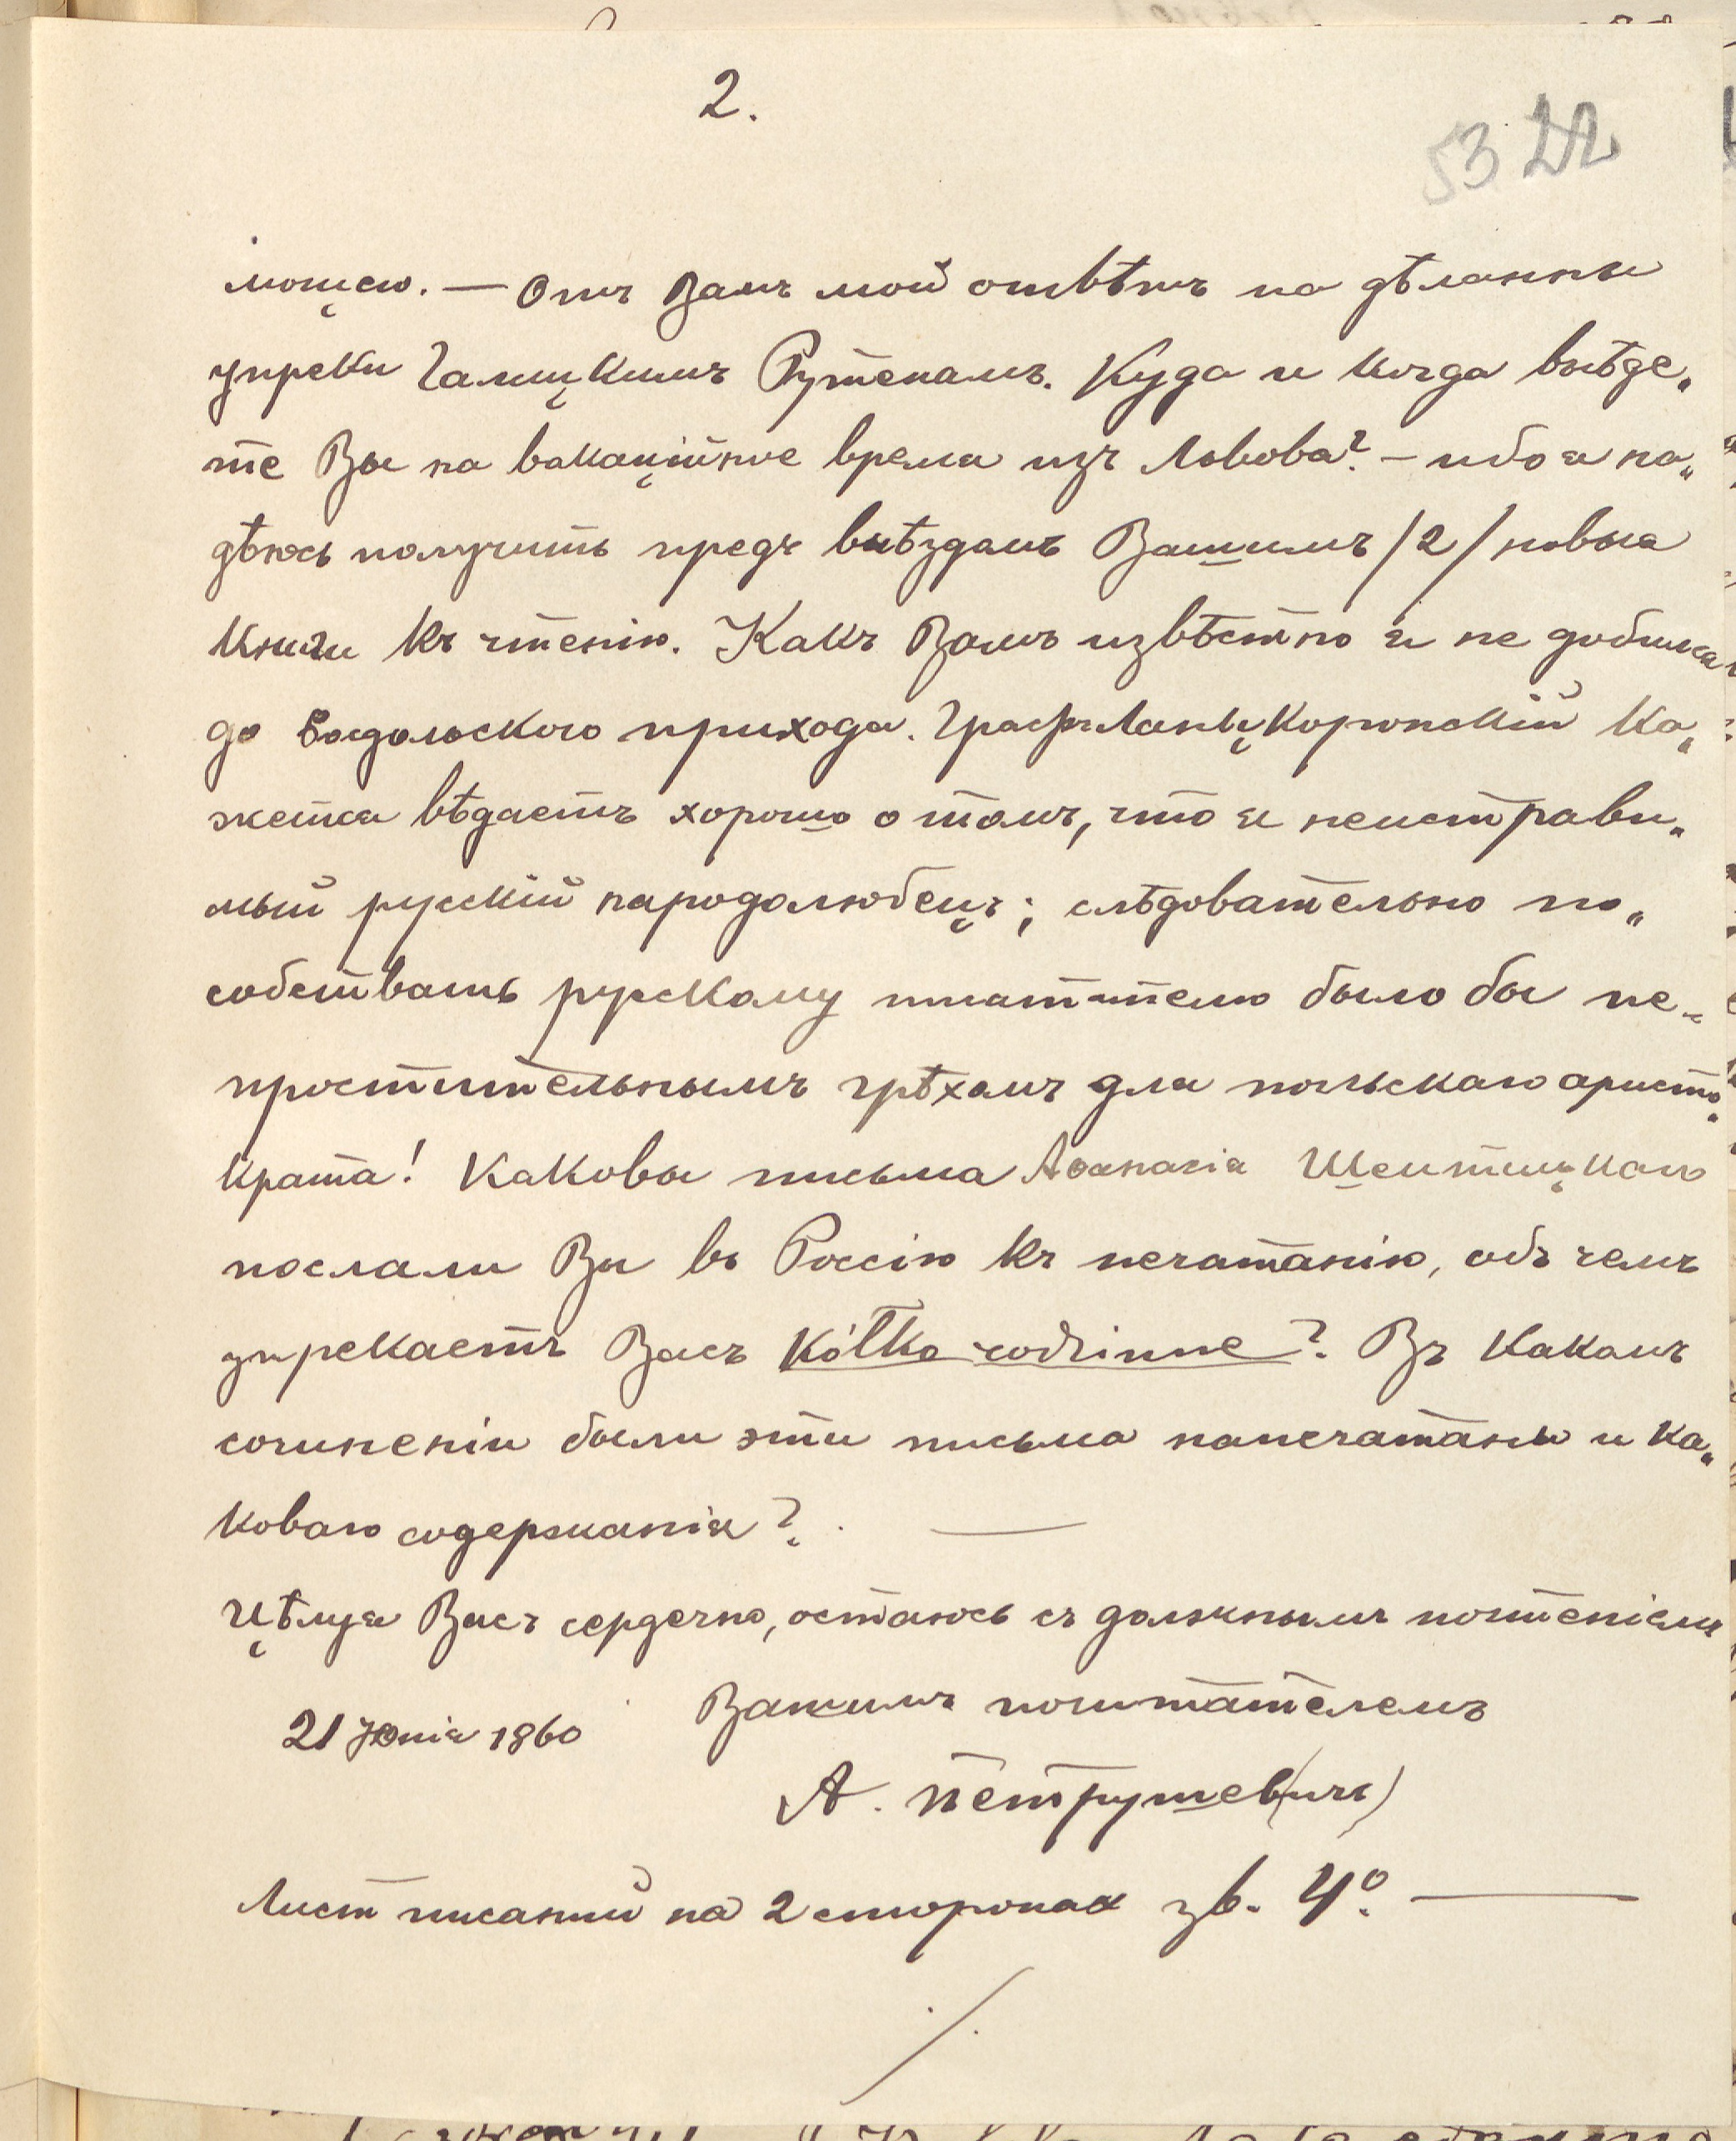 2.
53 22
мощею. — Отъ Вамъ мой отвѣтъ на дѣланны
упреки Галицкимъ Рутенамъ. Куда и когда выѣде„
те Вы на вакаційное время изъ Львова? – ибо я на„
дѣюсь получить предъ выѣздомъ Вашимъ /2/ новыя
книги къ чтенію. Какъ Вамъ извѣстно я не добился
до Бѣлдольского прихода. Графъ Ланьцкоронскій ка„
жется вѣдаетъ хорошо о томъ, что я неисправи„
мый русскій народолюбецъ; слѣдовательно по„
собствать русскому писателю было бы не„
простительнымъ грѣхомъ для польскаго аристо„
крата! Каковы письма Аѳанасія Шептицкаго
послали Ви въ Россію къ печатанію, объ чемъ
упрекаетъ Васъ Kółko rodzinne? Въ какомъ
сочиненіи были эти письма напечатаны и ка„
коваго содержанія? —
Цѣлуя Васъ сердечно, остаюсь съ должнымъ почтеніемъ
Вашимъ почитателемъ
21 Юнія 1860
А. Петрушев(ичъ)
Лист писаний на 2 сторонах зв. 4º. —